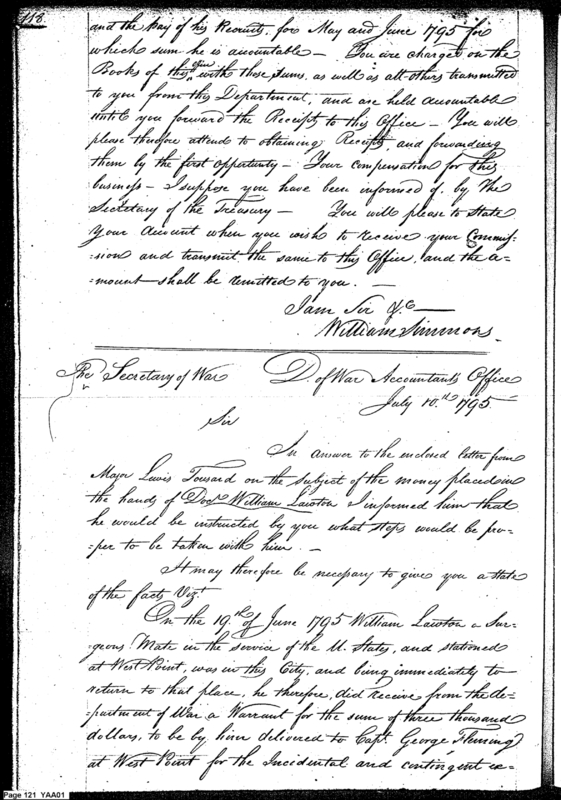 118.
and the Pay of his Recruits, for May and June 1795 for
which sum he is accountable — You are charged on the
Books of this office with those sums, as well as all others transmitted
to you from this Department, and are held accountable
until you forward the Receipts to this Office — You will
please therefore attend to obtaining Receipts and forwarding
them by the first opportunity — Your compensation for this
business — I suppose you have been informed of, by The
Secretary of the Treasury — You will please to State
Your Account when you wish to receive your Commis-
-sion and transmit the same to this Office, and the a-
-mount shall be remitted to you. —
I am Sir &c —
William Simmons.
The Secretary of War D. of War Accountants Office
July 10th 1795
Sir
In answer to the enclosed letter from
Major Lewis Tousard on the subject of the money placed in
the hands of Doctr William Lawton I informed him that
he would be instructed by you what steps would be pro-
-per to be taken with him. —
It may therefore be necessary to give you a state
of the facts Vizt
On the 19th of June 1795 William Lawton a Sur-
-geons Mate in the service of the U. States, and stationed
at West Point, was in this City, and being immediately to
return to that place, he therefore, did receive from the De-
-partment of War a Warrant for the sum of three thousand
dollars, to be by him delivered to Capt. George Fleming
at West Point for the Incidental and contingent ex-
Page 121 YAA01